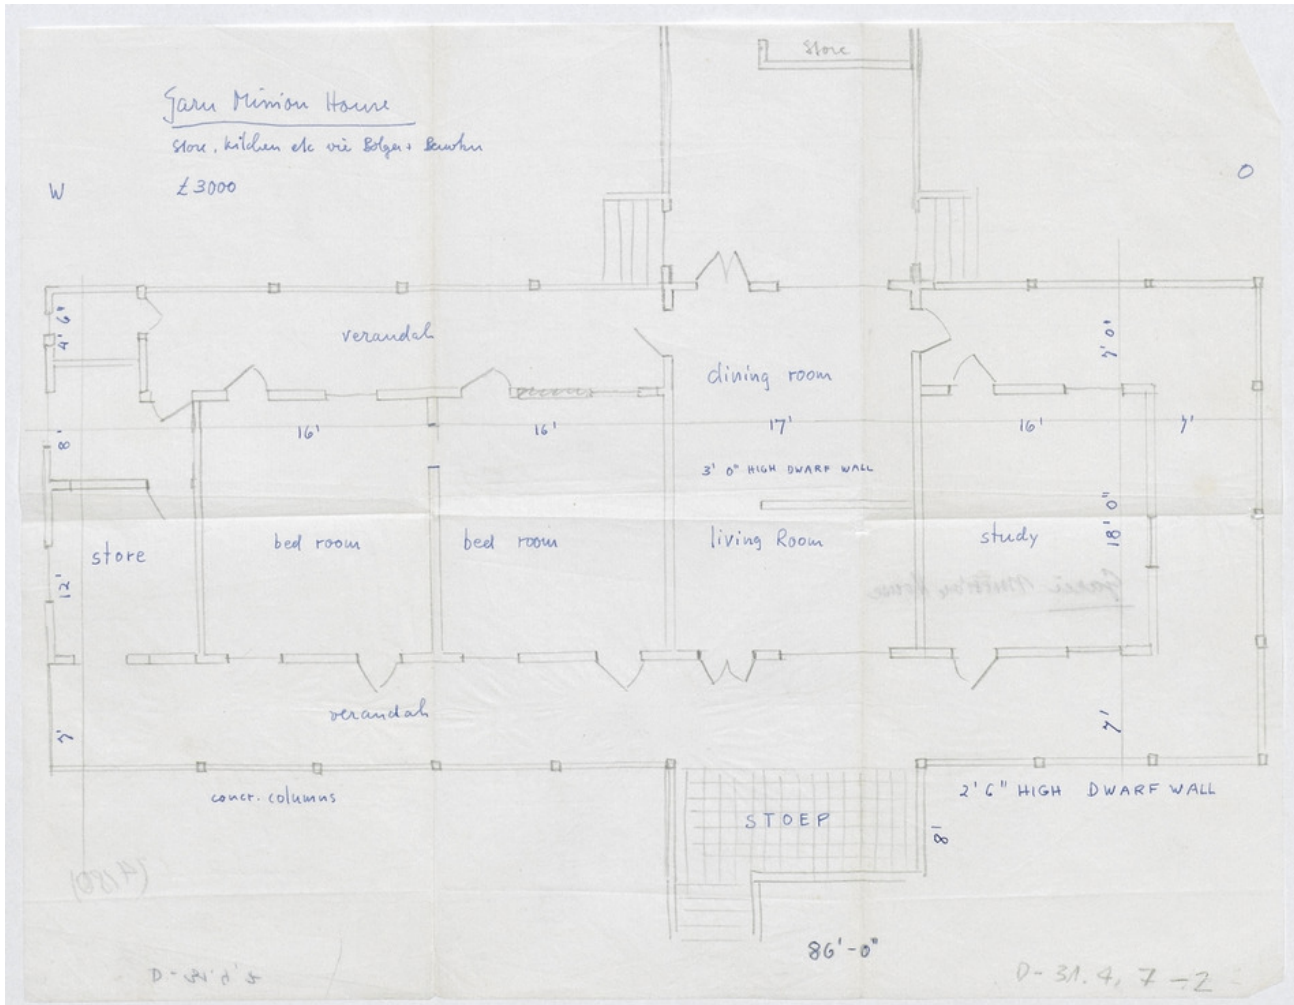 store
Garu Mission House
store, kitchen etc wie Bolga +
£ 3000
W
O
4' 6"
verandah
7' 0"
dining room
8'
16'
16'
17'
16'
7'
3' 0" HIGH DWARF WALL
18' 0"
store
bed room
bed room
living Room
study
12'
7'
verandah
7'
concr. columns
2' 6" HIGH DWARF WALL
STOEP
8'
86'-0"
D-31.4, 7-2